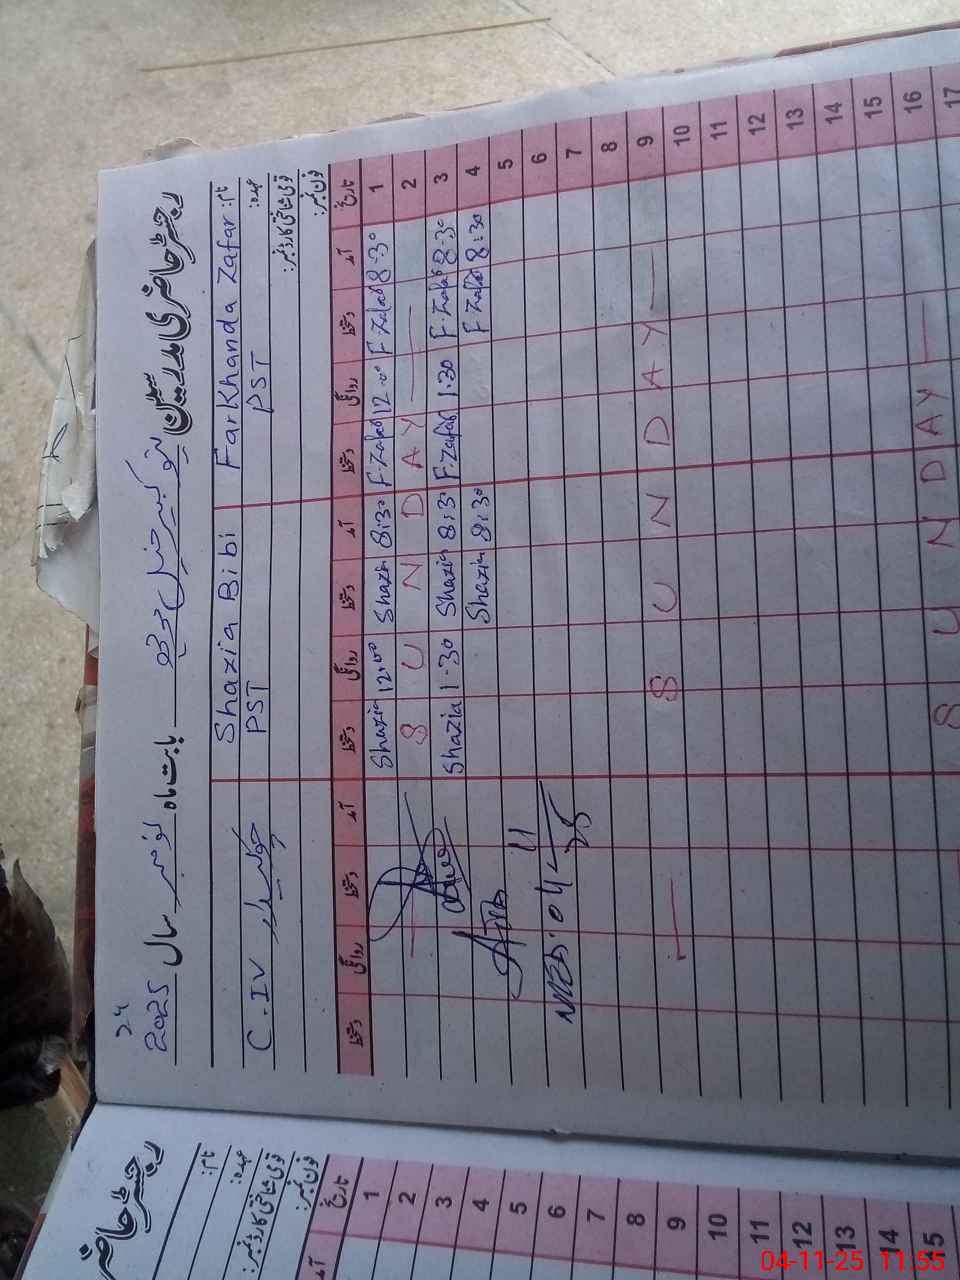 رجسٹر حاضری مدرسین
بابت ماہ نومبر سال 2025
24
نام: Farkhanda Zafar Shazia Bibi
عہدہ: PST PST چوکیدار C.IV
قومی شناختی کارڈ نمبر:
فون نمبر:
تاریخ آمد دستخط روانگی دستخط آمد دستخط روانگی دستخط آمد دستخط روانگی دستخط
1 8-30 F.Zafar 12-00 F.Zafar 8:30 Shazia 12:00 Shazia
2 — S U N D A Y —
3 8-30 F.Zafar 1.30 F.Zafar 8:30 Shazia 1-30 Shazia
4 8:30 F Zafar 8:30 Shazia
5
6 04-11-25
7
8
9 — S U N D A Y —
10
11
12
13
14
15
16 — S U N D A Y
17
رجسٹر حاضر
نام:
عہدہ:
قومی شناختی کارڈ نمبر:
فون نمبر:
تاریخ آمد
1
2
3
4
5
6
7
8
9
10
11
12
13
14
15
04-11-25 11:55